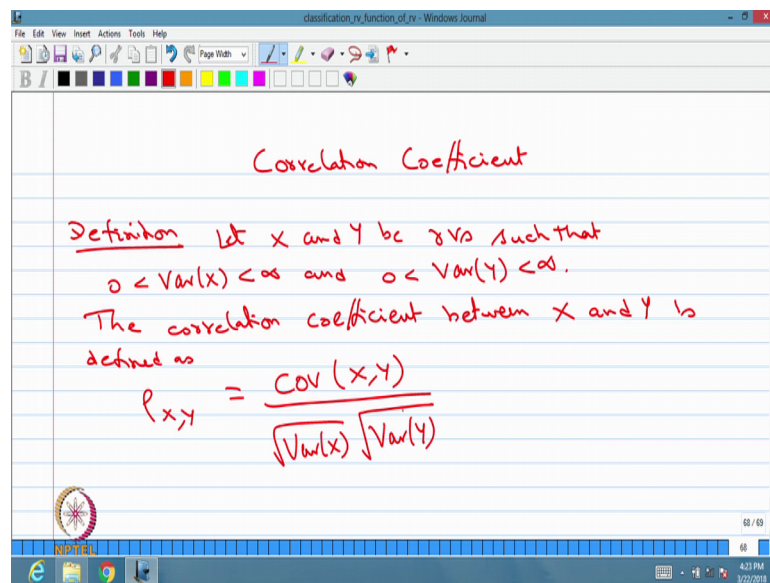 classification_rv_function_of_rv - Windows Journal
File Edit View Insert Actions Tools Help
Page Width
B I
Correlation Coefficient
Definition Let X and Y be rvs such that
0 < Var(X) < ∞ and 0 < Var(Y) < ∞.
The correlation coefficient between X and Y is
defined as
ρx,y = Cov (X,Y) / √Var(X) √Var(Y)
NPTEL
68 / 69
68
4:23 PM
3/22/2018